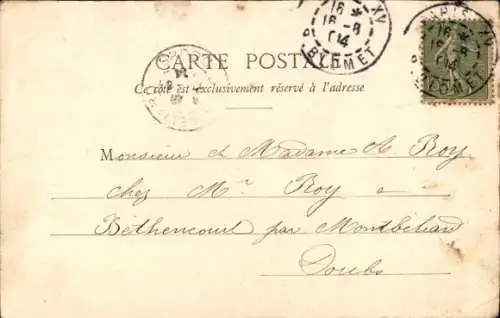 CARTE POSTALE
Ce côté est exclusivement réservé à l'adresse
PARIS XV
16 * 
16 - 8
04
R. BLOMET
Monsieur et Madame A. Roy
chez Mr. Roy
Béthencourt par Montbéliard
Doubs